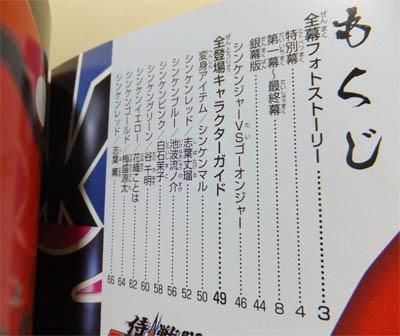 もくじ
全幕フォトストーリー……3
特別幕……4
第一幕〜最終幕……8
銀幕版……44
シンケンジャーVSゴーオンジャー……46
全登場キャラクターガイド……49
変身アイテム/シンケンマル……50
シンケンレッド/志葉丈瑠……52
シンケンブルー/池波流ノ介……56
シンケンピンク/白石茉子……58
シンケングリーン/谷 千明……60
シンケンイエロー/花織ことは……62
梅盛源太……64
シンケンレッド/志葉 薫……66
侍戦隊